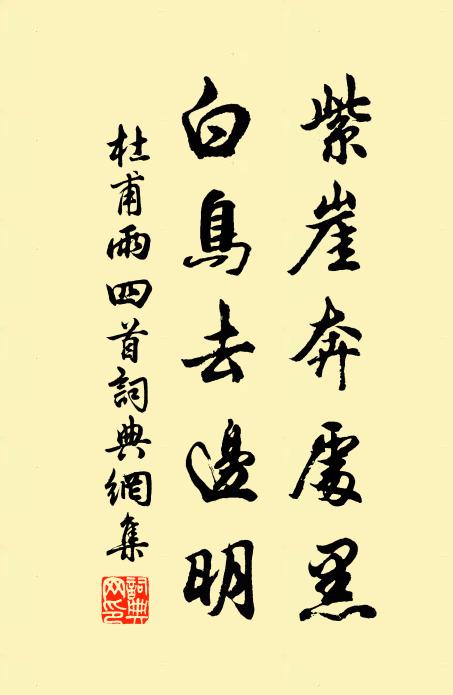 紫崖奔處黑
白鳥去邊明
杜甫雨四首詞典網集
詞典網印